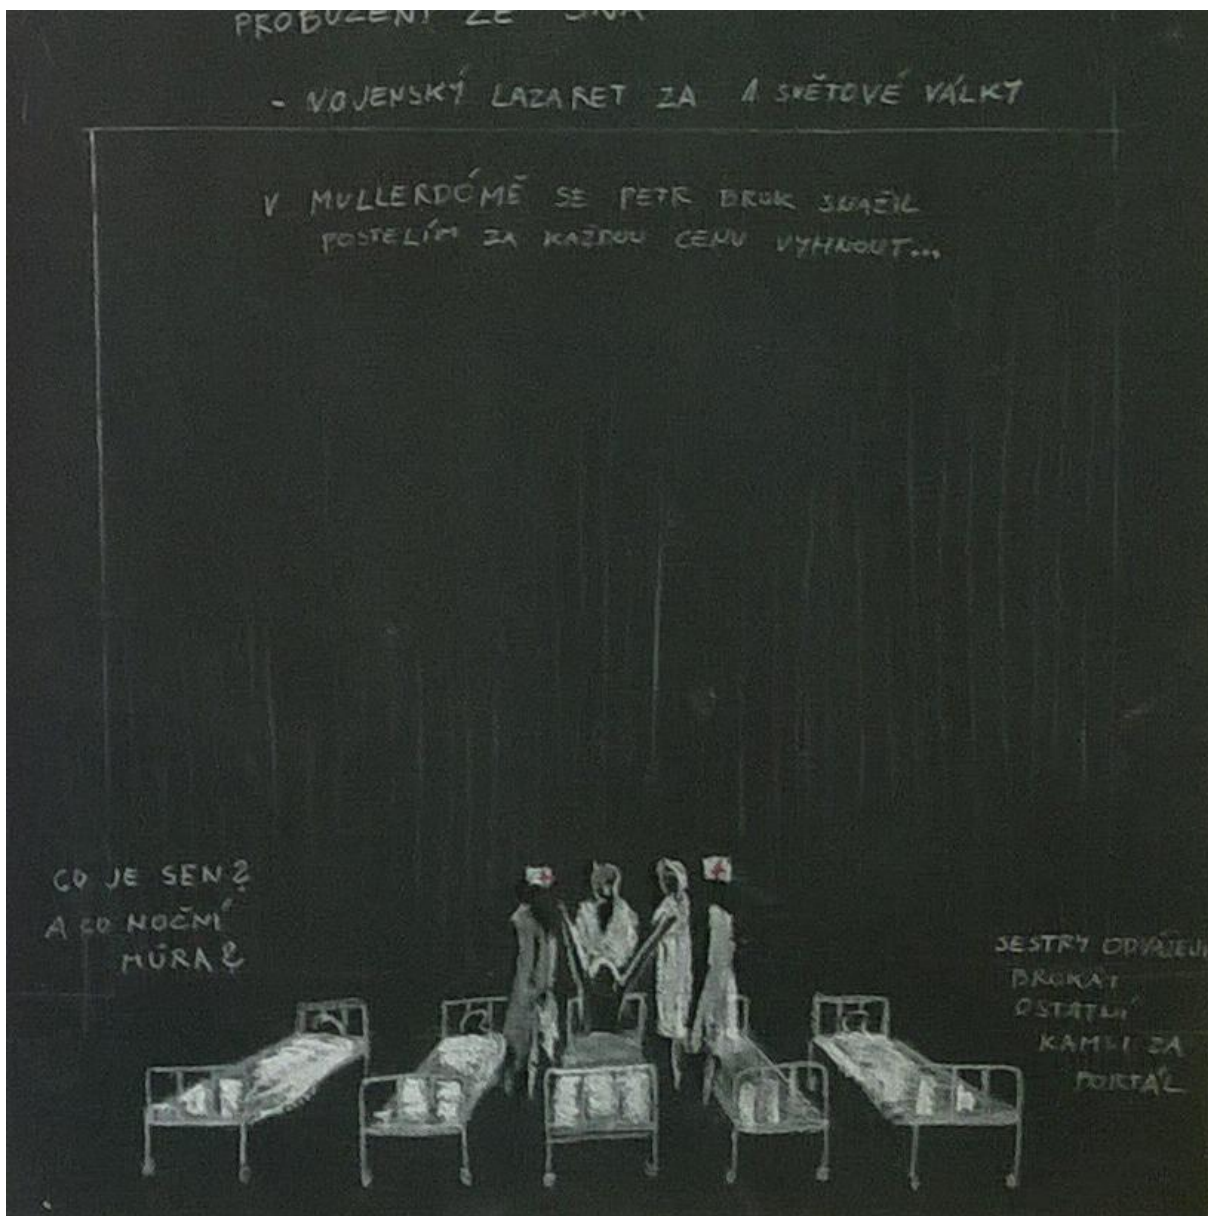 PROBUZENÍ ZE SNA
- VOJENSKÝ LAZARET ZA 1 SVĚTOVÉ VÁLKY
V MULLERDÓMĚ SE PETR BROK SNAŽIL
POSTELÍM ZA KAŽDOU CENU VYHNOUT...
CO JE SEN?
A CO NOČNÍ
MŮRA?
SESTRY
OSTATNÍ
ZA
PORTÁL